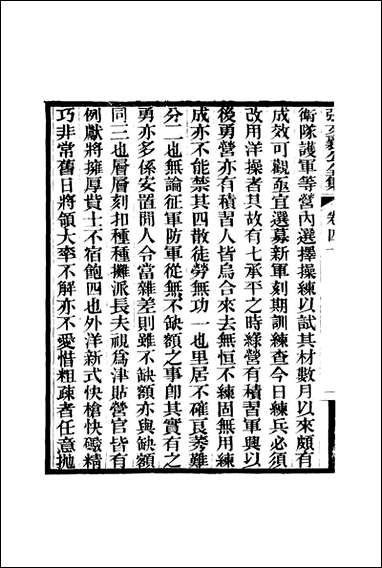 衛隊護軍等營內選擇操練以試其材數月以來頗有
成效可觀亟宜選募新軍刻期訓練查今日練兵必須
改用洋操者其故有七承平之時綠營有積習軍興以
後勇營亦有積習人皆烏合來去無恒不練固無用練
成亦不能禁其四散徒勞無功一也里居不確良莠難
分二也無論征軍防軍從無不缺額之事卽其實有之
勇亦多係安置閒人令當雜差則雖不缺額亦與缺額
同三也層層刻扣種種攤派長夫視爲津貼營官皆有
例獻將擁厚貲士不宿飽四也外洋新式快槍快礮精
巧非常舊日將領大率不解亦不愛惜粗疎者任意拋
卷四十